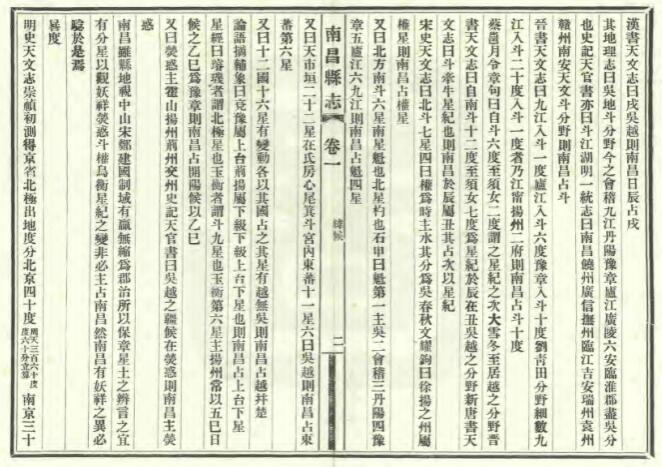 漢書天文志曰戌吳越則南昌日辰占戌
其地理志曰吳地斗分野今之會稽九江丹陽豫章廬江廣陵六安臨淮郡盡吳分
也史記天官書亦曰斗江湖明一統志曰南昌饒州廣信撫州臨江吉安瑞州袁州
贛州南安天文斗分野則南昌占斗
晉書天文志曰九江入斗一度廬江入斗六度豫章入斗十度劉青田分野細數九
江入斗二十度入斗一度者乃江甯揚州二府則南昌占斗十度
蔡邕月令章句曰自斗六度至須女二度謂之星紀之次大雪冬至居之越之分野晉
書天文志曰自南斗十二度至須女七度爲星紀於辰在丑吳越之分野新唐書天
文志曰斗牽牛星紀也則南昌於辰屬丑其占次以星紀
宋史天文志曰北斗七星四曰權爲時主水其分爲吳春秋文耀鉤曰徐揚之州屬
權星則南昌占權星
又曰北方南斗六星南星魁也北星杓也石申曰魁第一主吳二會稽三丹陽四豫
章五廬江六九江則南昌占魁四星
南昌縣志
卷一
緯候
二
又曰天市垣二十二星在氐房心尾箕斗宮內東蕃十一星六曰吳越則南昌占東
蕃第六星
又曰十二國十六星有變動各以其國占之其星有越無吳則南昌占越幷楚
論語摘輔象曰兗豫屬上台荊揚屬下級下級上台下星也則南昌占上台下星
星經曰璿璣者謂北極星也玉衡者謂斗九星也玉衡第六星主揚州常以五巳日
候之乙巳爲豫章則南昌占開陽候以乙巳
又曰熒惑主霍山揚州荊州交州史記天官書曰吳越之疆候在熒惑則南昌主熒
惑
南昌雖縣地視中山宋鄭建國制域有贏無縮爲郡治所以保章星土之辨言之宜
有分星以觀妖祥熒惑斗權鳥衡星紀之變非必主占南昌然南昌有妖祥之異必
驗於是焉
晷度
明史天文志崇禎初測得京省北極出地度分北京四十度周天三百六十度度六十分立算南京三十